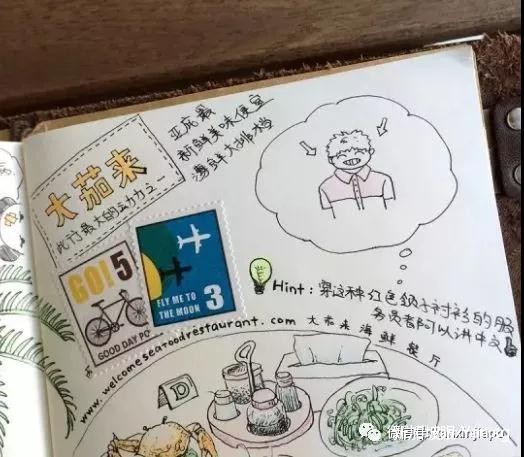 亚庇最
新鲜美味便宜
海鲜大排档
大茄来
此行最大的动力之一
GO! 5
GOOD DAY PO
FLY ME TO
THE MOON 3
Hint: 穿这种红色领子衬衫的服
务员都可以讲中文
www.welcomeseafoodrestaurant.com 大茄来海鲜餐厅
D